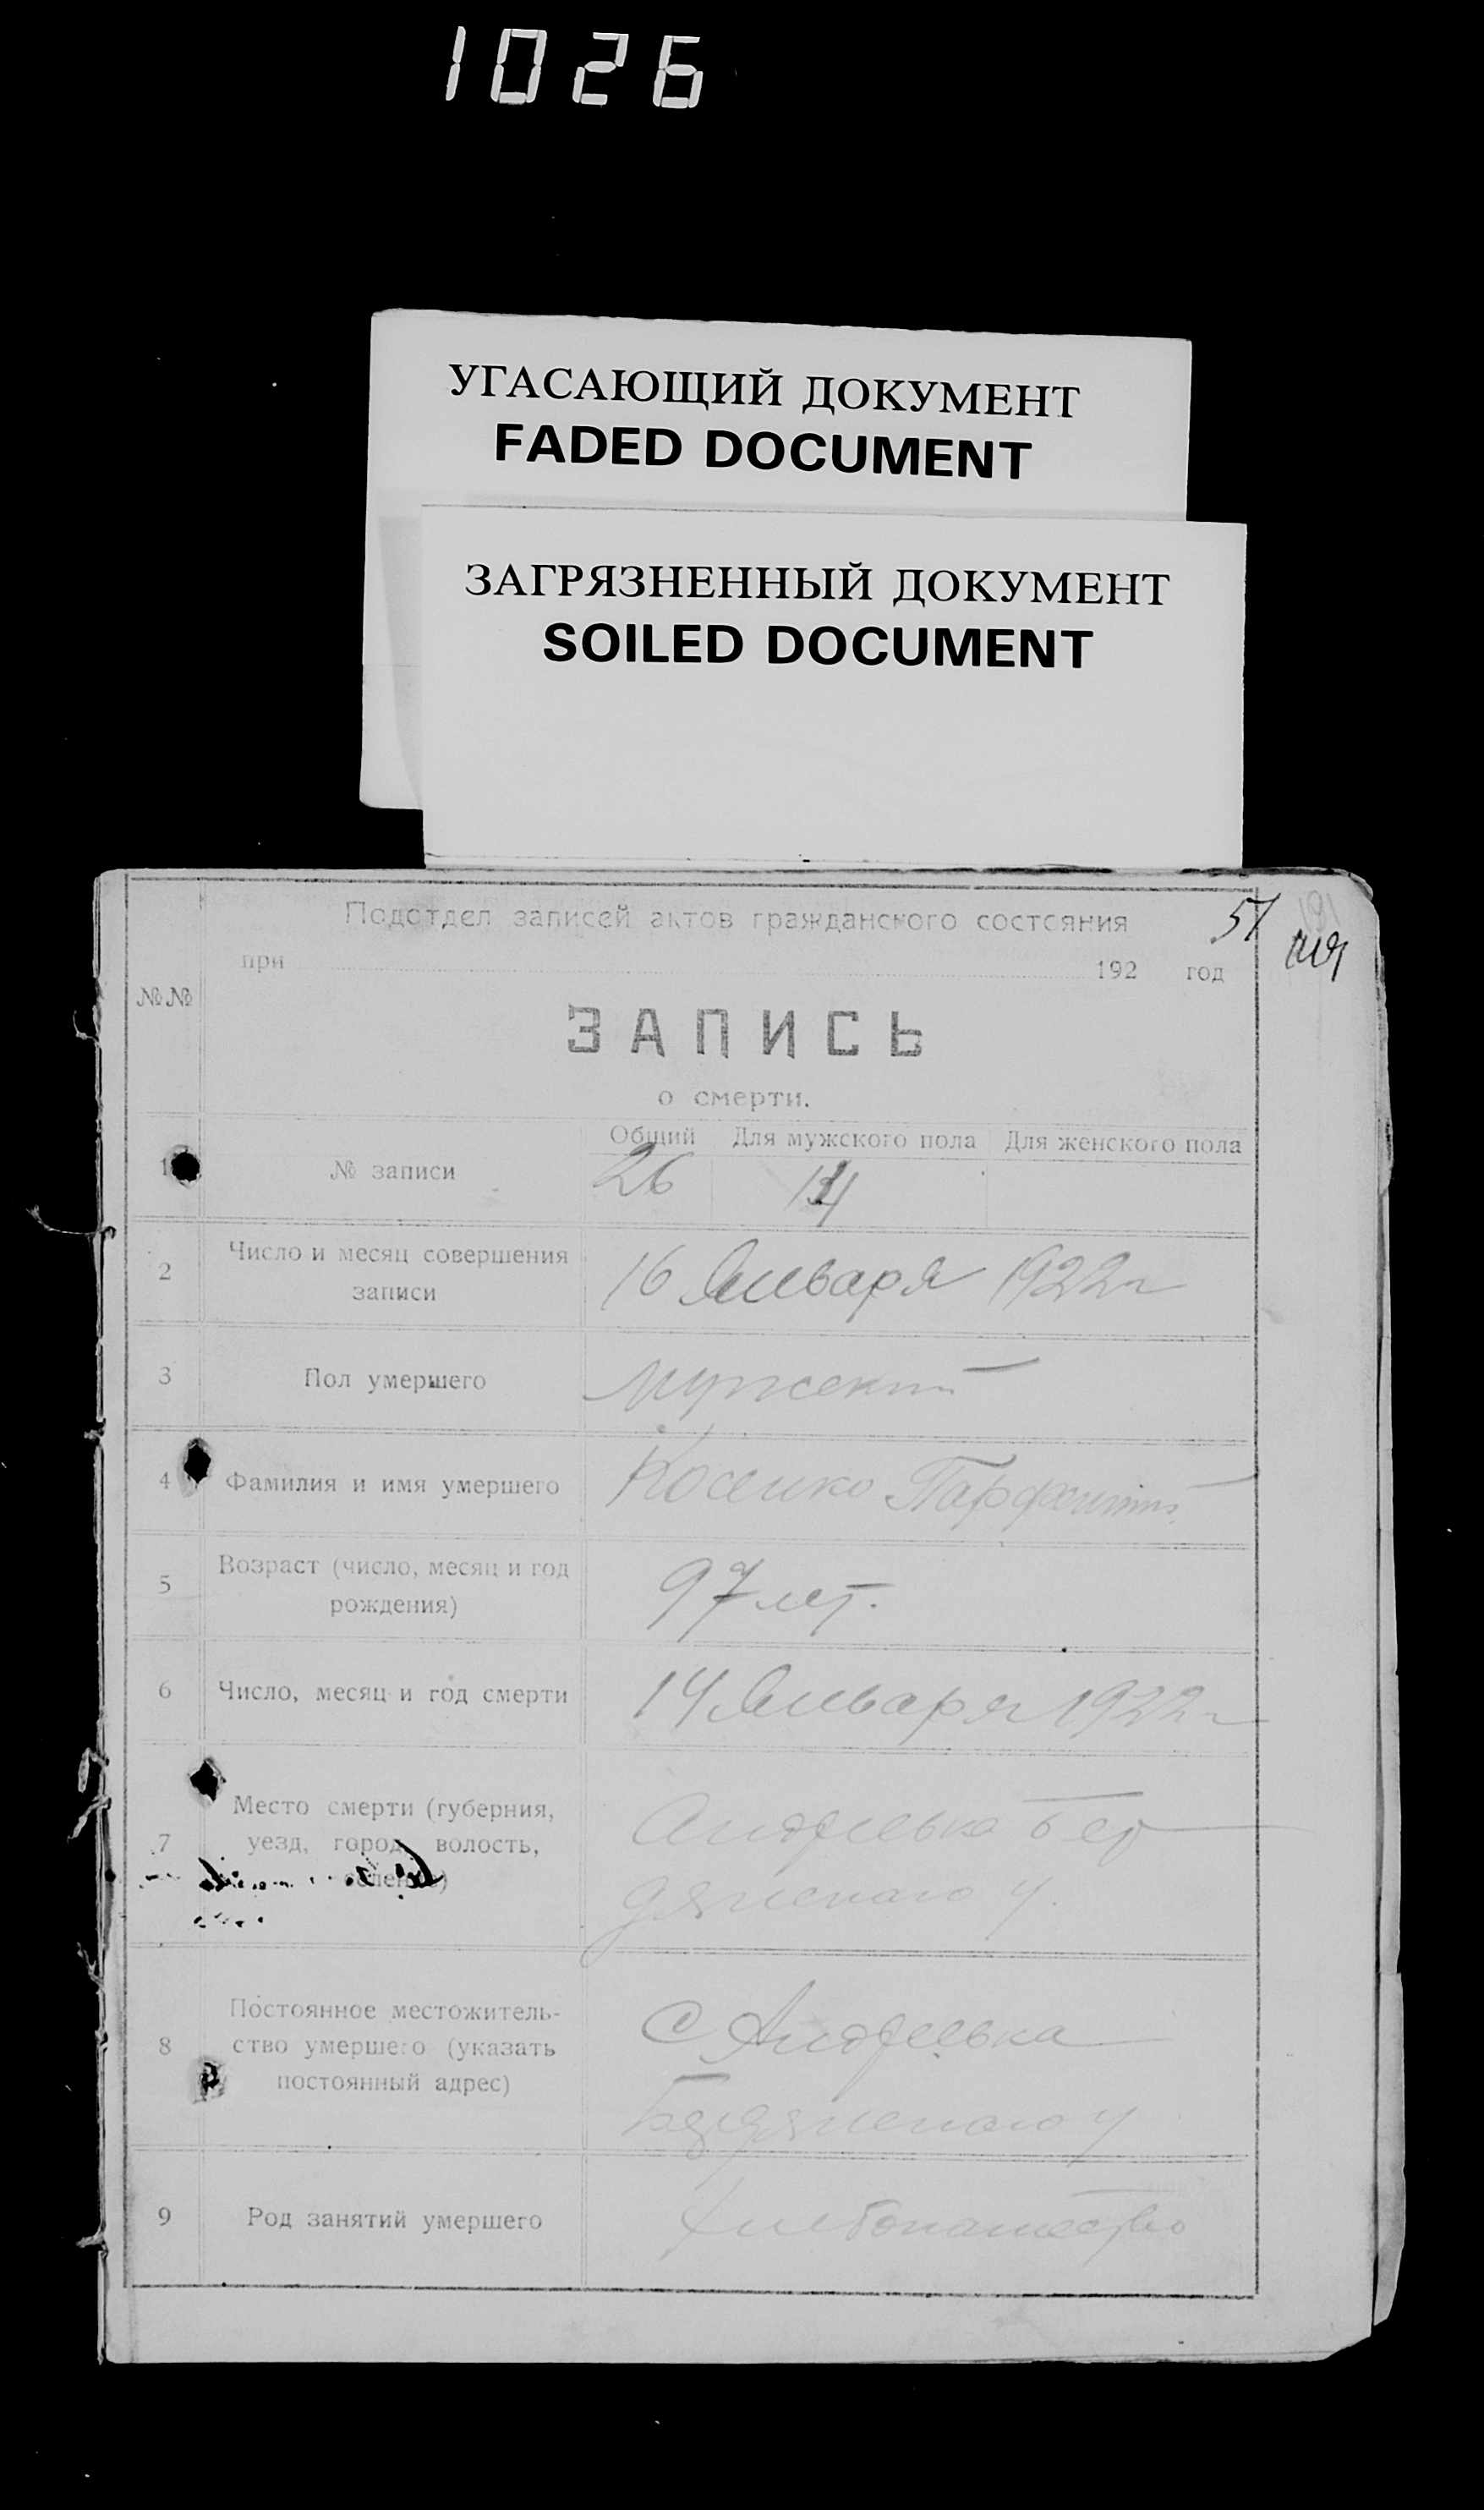 1026
УГАСАЮЩИЙ ДОКУМЕНТ
FADED DOCUMENT
ЗАГРЯЗНЕННЫЙ ДОКУМЕНТ
SOILED DOCUMENT
Подотдел записей актов гражданского состояния
51
при 192 год
№№
ЗАПИСЬ
о смерти.
Общий Для мужского пола Для женского пола
1 № записи 26
2 Число и месяц совершения
записи
16 Января 1922 г
3 Пол умершего мужской
4 Фамилия и имя умершего Косенко
5 Возраст (число, месяц и год
рождения)
97 лет.
6 Число, месяц и год смерти 14 Января 1922 г
7 Место смерти (губерния,
уезд, город, волость,
Андреевка Бер
дянского у.
8 Постоянное местожитель-
ство умершего (указать
постоянный адрес)
С Андреевка
Бердянского у
9 Род занятий умершего хлебопашество